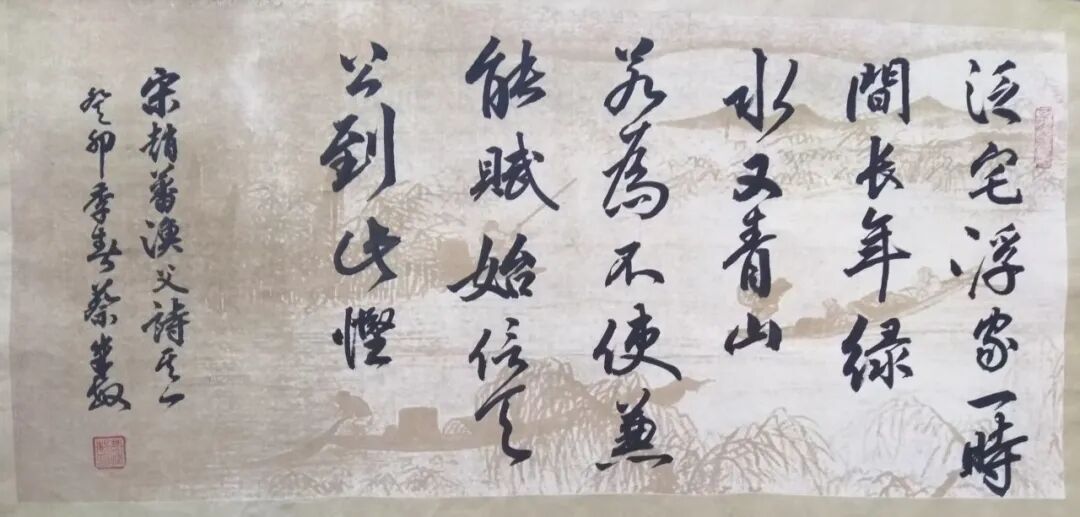 泛宅浮家一時
間长年绿
水又青山
若為不使兼
能賦始信天
公到此慳
宋趙蕃漁父詩其一
癸卯季春蔡